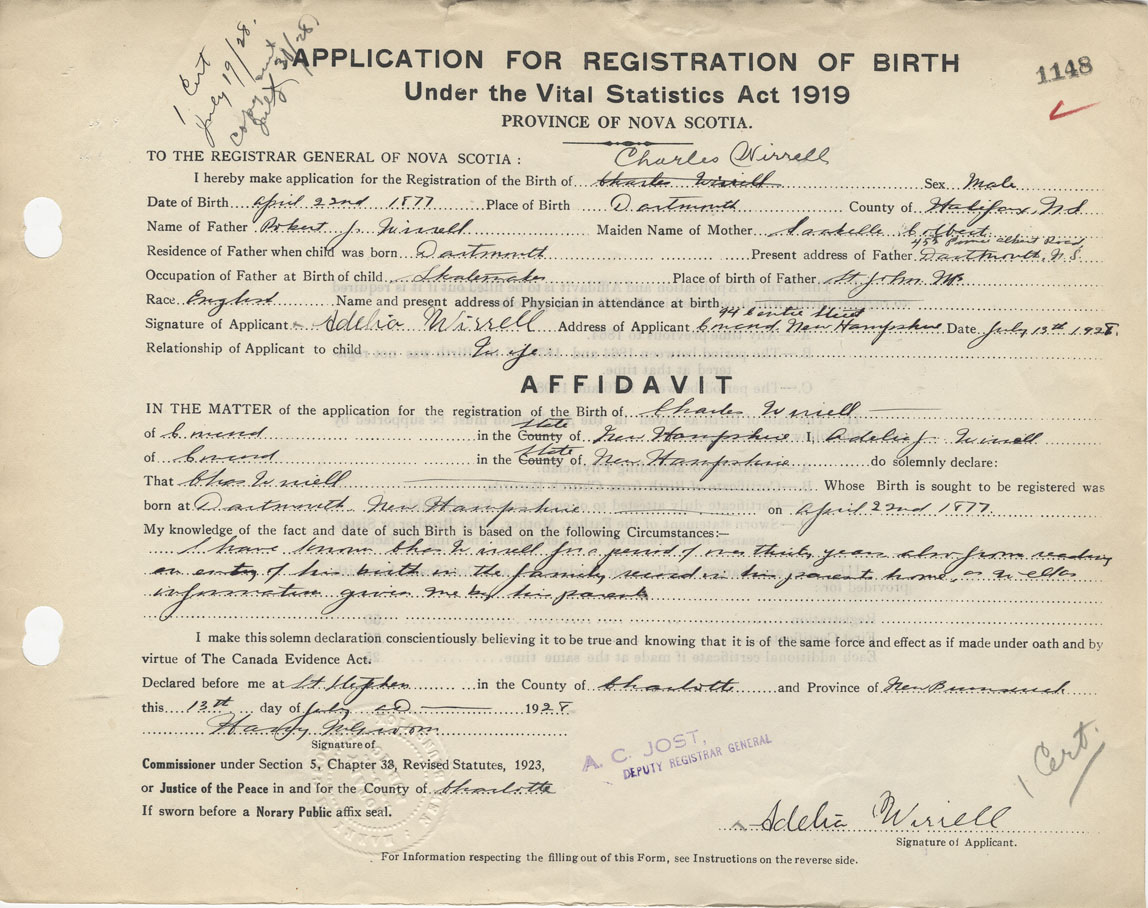 1 Cert
July 19/28.
copy sent
July 30/28
APPLICATION FOR REGISTRATION OF BIRTH
1148
Under the Vital Statistics Act 1919
PROVINCE OF NOVA SCOTIA.
TO THE REGISTRAR GENERAL OF NOVA SCOTIA : Charles Wirrell
I hereby make application for the Registration of the Birth of Charles Wirrell Sex Male
Date of Birth April 22nd 1877 Place of Birth Dartmouth County of Halifax, N.S
Name of Father Robert J. Wirrell Maiden Name of Mother Isabelle Colbert
455 Prince Albert Road,
Residence of Father when child was born Dartmouth Present address of Father Dartmouth, N.S.
Occupation of Father at Birth of child Skatemaker Place of birth of Father St. John
Race English Name and present address of Physician in attendance at birth
94 Centre Street
Signature of Applicant Adelia Wirrell Address of Applicant Concord, New Hampshire Date July 13th 1928.
Relationship of Applicant to child Wife
AFFIDAVIT
IN THE MATTER of the application for the registration of the Birth of Charles Wirrell
of Concord in the County State of New Hampshire I, Adelia J. Wirrell
of Concord in the County State of New Hampshire do solemnly declare:
That Chas Wirrell Whose Birth is sought to be registered was
born at Dartmouth New Hampshire on April 22nd 1877.
My knowledge of the fact and date of such Birth is based on the following Circumstances:—
I have known Chas Wirrell for a period of over thirty years also from reading
an entry of his birth in the family record in his parents home, as well as
information given me by his parents
I make this solemn declaration conscientiously believing it to be true and knowing that it is of the same force and effect as if made under oath and by
virtue of The Canada Evidence Act.
Declared before me at St. Stephen in the County of Charlotte and Province of New Brunswick
this 13th day of July AD 1928
Harry
Signature of
Commissioner under Section 5, Chapter 38, Revised Statutes, 1923,
or Justice of the Peace in and for the County of Charlotte
If sworn before a Norary Public affix seal.
A. C. JOST,
DEPUTY REGISTRAR GENERAL
1 Cert.
Adelia Wirrell
Signature of Applicant.
For Information respecting the filling out of this Form, see Instructions on the reverse side.